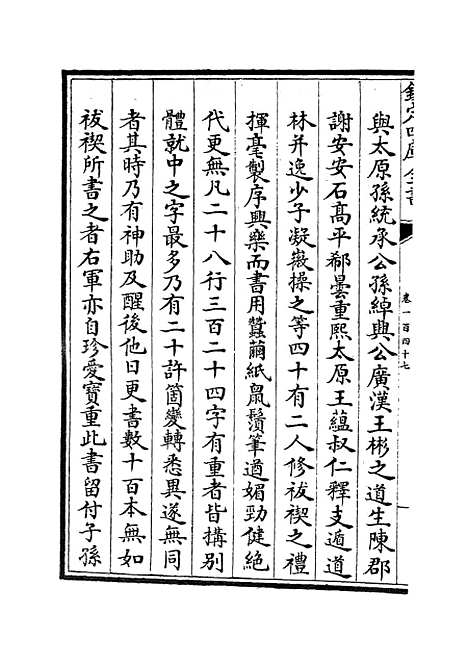 欽定四庫全書
卷一百四十七
與太原孫統承公孫綽興公廣漢王彬之道生陳郡
謝安安石髙平郗曇重熙太原王蘊叔仁釋支遁道
林并逸少子凝徽操之等四十有二人修祓禊之禮
揮毫製序興樂而書用蠶繭紙鼠鬚筆遒媚勁健絶
代更無凡二十八行三百二十四字有重者皆搆別
體就中之字最多乃有二十許箇變轉悉異遂無同
者其時乃有神助及醒後他日更書數十百本無如
祓禊所書之者右軍亦自珍愛寶重此書留付子孫